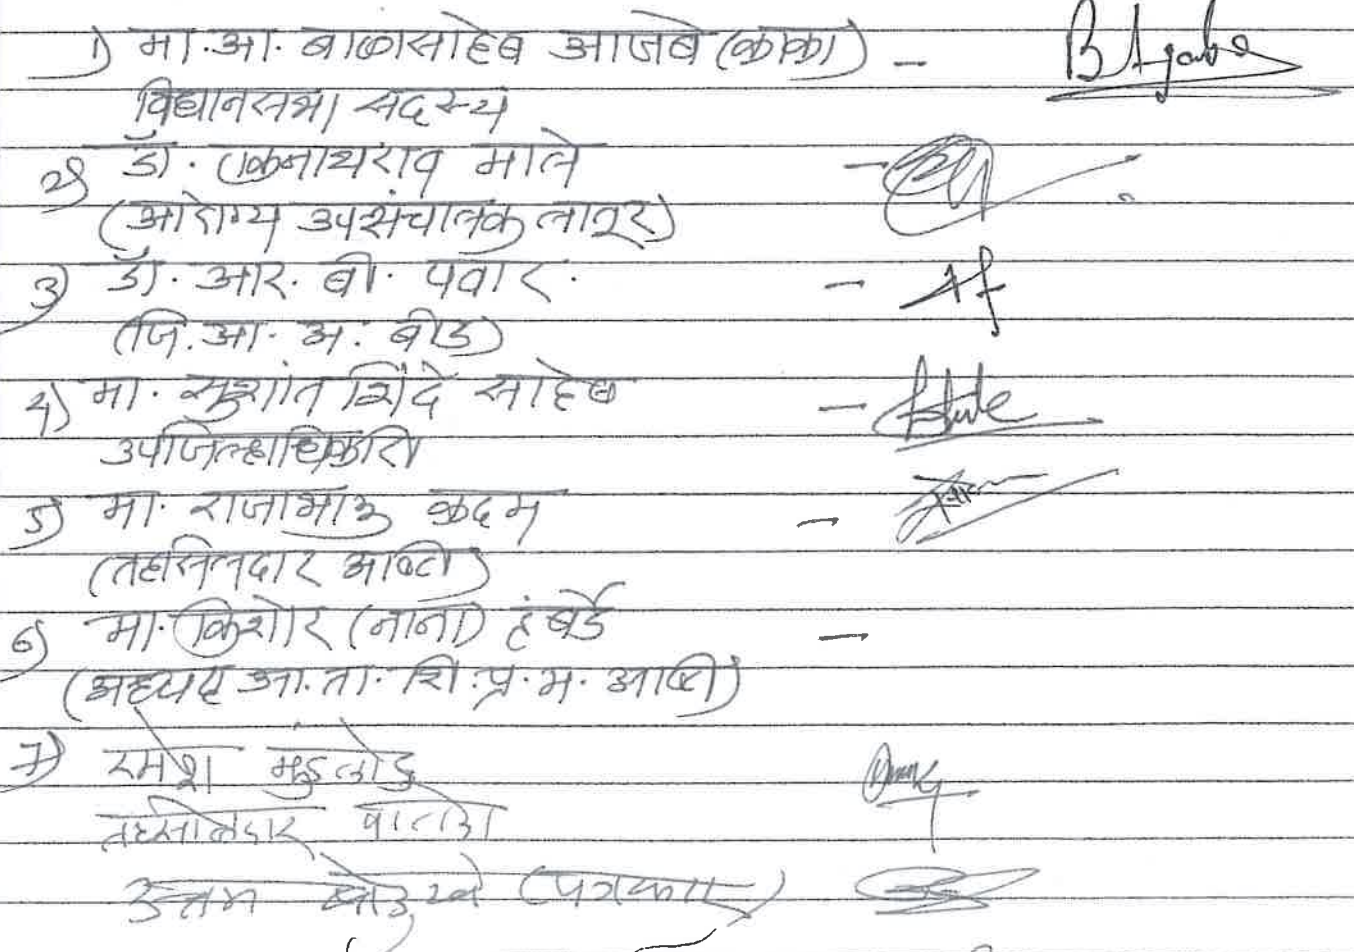 1) मा. आ. बाळासाहेब आजबे (काका) - B Ajabe
विधानसभा सदस्य
2) डॉ. एकनाथराव माले -
(आरोग्य उपसंचालक लातूर)
3) डॉ. आर. बी. पवार. -
(जि. आ. अ. बीड)
4) मा. सुशांत शिंदे साहेब -
उपजिल्हाधिकारी
5) मा. राजाभाऊ कदम -
(तहसिलदार आष्टी)
6) मा. किशोर (नाना) हंबर्डे -
(अध्यक्ष आ. ता. शि. प्र. म. आष्टी)
7) रमेश मुंडलोड
तहसीलदार पाटोदा
उत्तम बोडखे (पत्रकार)